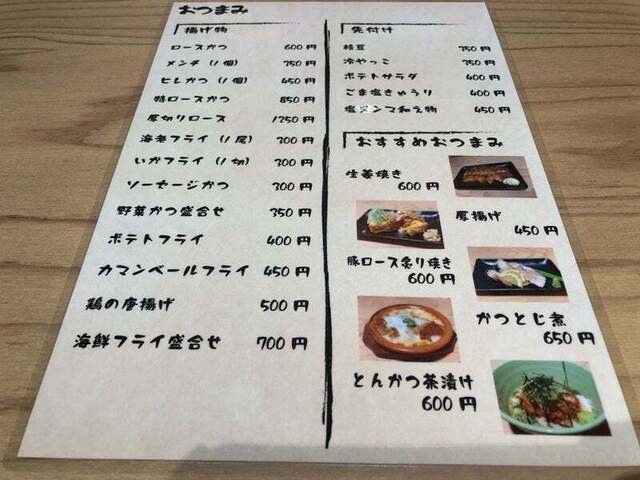 おつまみ
揚げ物
ロースかつ 600円
メンチ(1個) 350円
ヒレかつ(1個) 450円
特ロースかつ 850円
厚切りロース 1350円
海老フライ(1尾) 300円
いかフライ(1切) 300円
ソーセージかつ 300円
野菜かつ盛合せ 350円
ポテトフライ 400円
カマンベールフライ 450円
鶏の唐揚げ 500円
海鮮フライ盛合せ 700円
先付け
枝豆 350円
冷やっこ 350円
ポテトサラダ 400円
ごま塩きゅうり 400円
塩メンマ和え物 450円
おすすめおつまみ
生姜焼き
600円
厚揚げ
450円
豚ロース炙り焼き
600円
かつとじ煮
650円
とんかつ茶漬け
600円